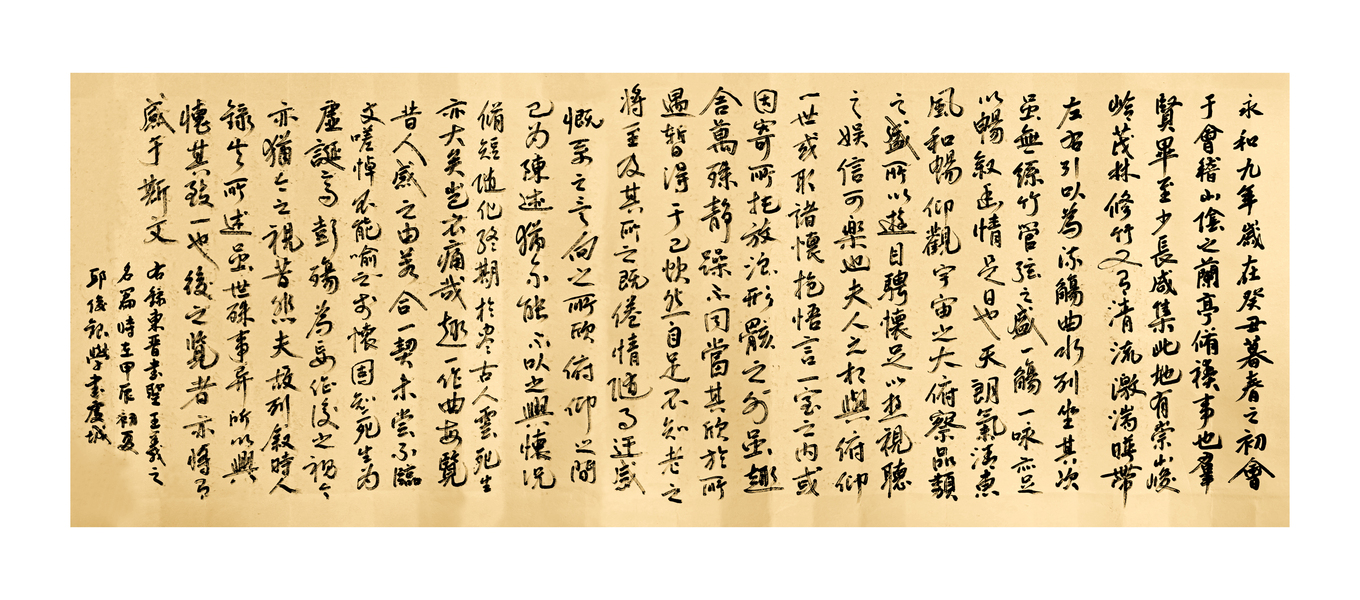 永和九年歲在癸丑暮春之初會
于會稽山陰之蘭亭脩禊事也羣
賢畢至少長咸集此地有崇山峻
嶺茂林修竹又有清流激湍暎帶
左右引以為流觴曲水列坐其次
虽無絲竹管弦之盛一觴一咏亦足
以暢敘幽情是日也天朗氣清惠
風和暢仰觀宇宙之大俯察品類
之盛所以遊目騁懷足以極視聽
之娛信可樂也夫人之相與俯仰
一世或取諸懷抱悟言一室之內或
因寄所托放浪形骸之外虽趣
舍萬殊靜躁不同當其欣於所
遇暫得于己快然自足不知老之
將至及其所之既倦情随事迁感
慨系之矣向之所欣俯仰之間
已为陳迹猶不能不以之興懷況
脩短随化終期於盡古人雲死生
亦大矣豈不痛哉趣一作曲每覽
昔人感之由若合一契未尝不臨
文嗟悼不能喻之於懷固知死生为
虛誕齊彭殤為妄作後之視今
亦猶今之視昔悲夫故列敘時人
錄其所述虽世殊事异所以興
懷其致一也後之覽者亦將有
感于斯文
右錄東晋書聖王羲之
名篇時在甲辰初夏
邱俊銀學書蓉城